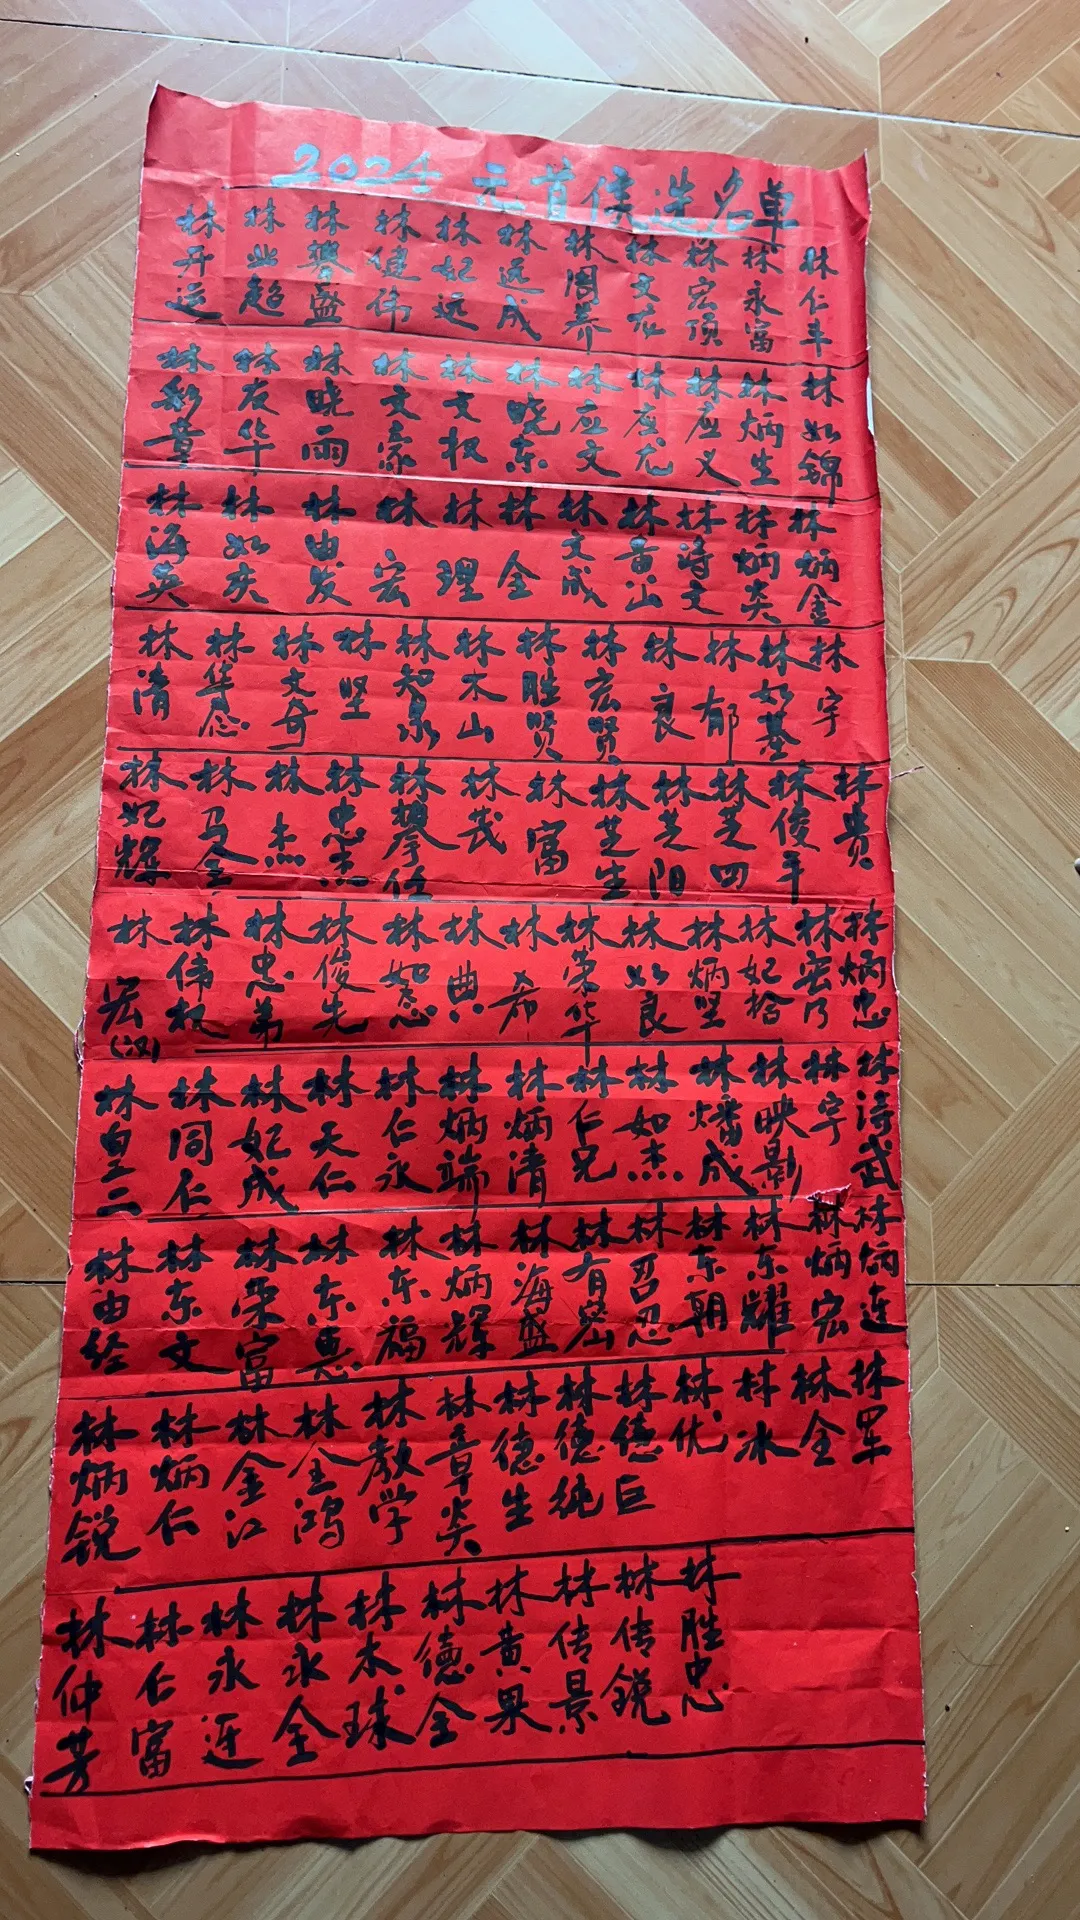 2024 元首侯选名单
林开运 林业超 林攀盛 林健伟 林妃远 林远成 林周养 林文 林宏顶 林永富 林仁丰
林彩章 林友华 林晓雨 林文豪 林文权 林晓东 林应文 林应尤 林应义 林炳生 林如锦
林海英 林如庆 林由发 林宏 林理 林金 林文成 林香山 林诗文 林炳炎 林炳金
林清 林华总 林文奇 林坚 林知泉 林木山 林胜贤 林宏贤 林良 林郁 林如基 林宇
林妃辉 林马金 林杰 林忠杰 林攀任 林茂 林富 林芝生 林芝阳 林芝四 林俊平 林贵
林宏(汉) 林伟权 林忠弟 林俊先 林如总 林典 林希 林荣华 林如良 林炳坚 林妃拾 林宏乃 林炳忠
林皇二 林同仁 林妃成 林天仁 林仁永 林炳端 林炳清 林仁兄 林如杰 林燔成 林映影 林宇 林诗武
林由经 林东文 林荣富 林东惠 林东福 林炳辉 林海盛 林有 林召忍 林东朝 林东耀 林炳宏 林炳连
林炳锐 林炳仁 林金江 林金鸿 林教学 林章炎 林德生 林德纯 林德巨 林优 林冰 林全 林军
林仲芳 林仁富 林永连 林永全 林木球 林德全 林黄果 林传景 林传锐 林胜忠